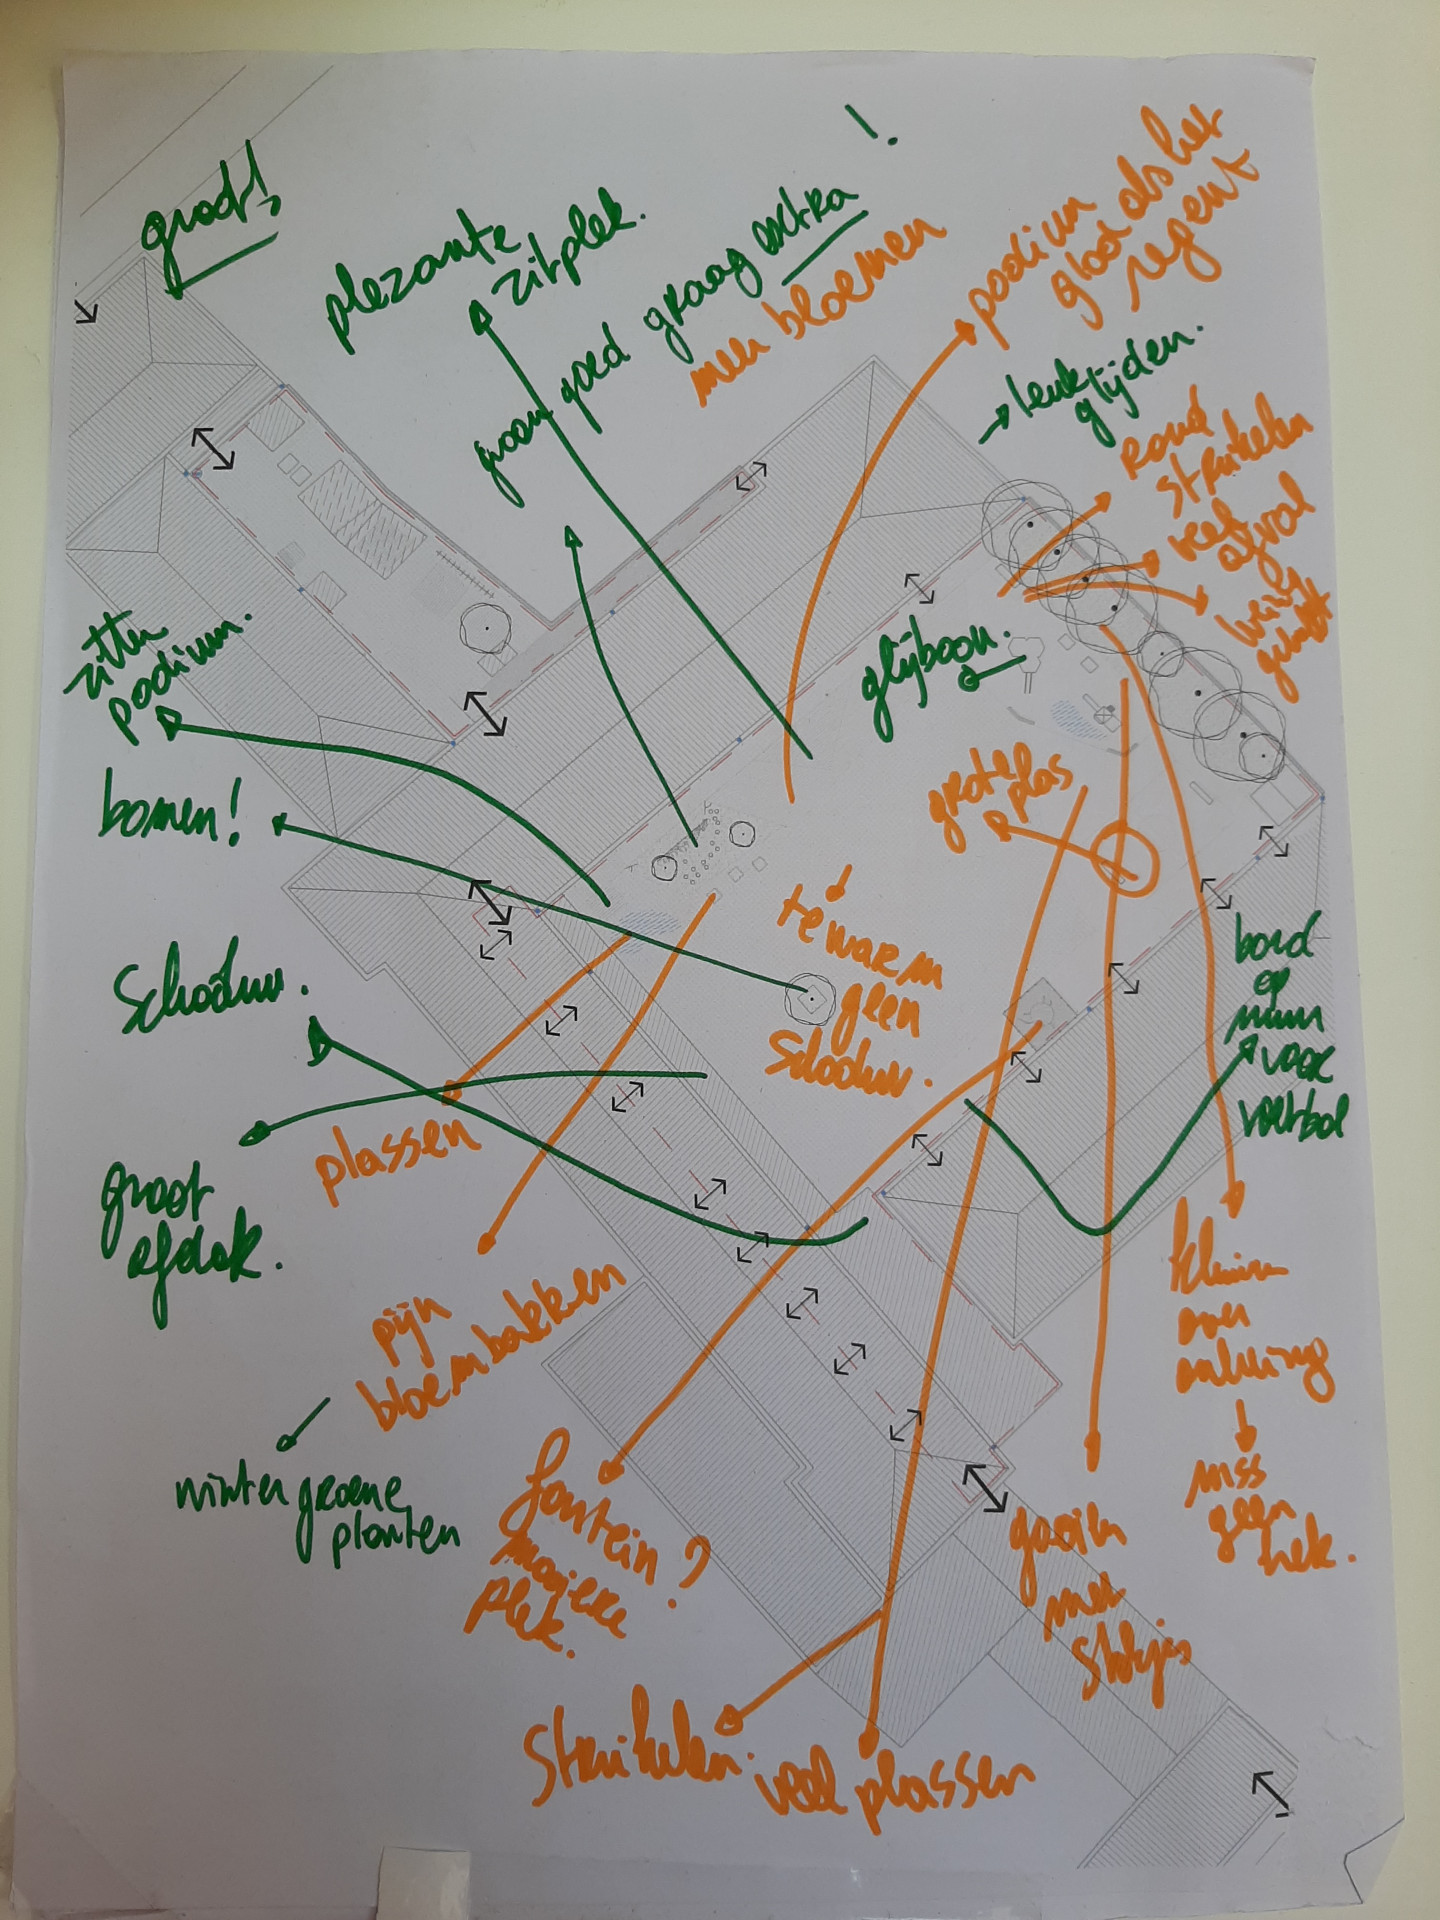 groot!
plezante
zitplek.
groen goed graag extra !
meer bloemen
podium
glad als het
regent
leuk
glijden.
rond
struikelen
afval
weinig
glijbaan.
zitten
podium.
bomen!
grote plas
te warm
geen
Schaduw.
bord
op
muur
voor
voetbal
Schaduw.
plassen
groot
afdak.
pijn
bloembakken
winter groene
planten
fontein?
plek.
gooien
met
Stokjes
over
mss
geen
hek.
Struikelen.
veel plassen